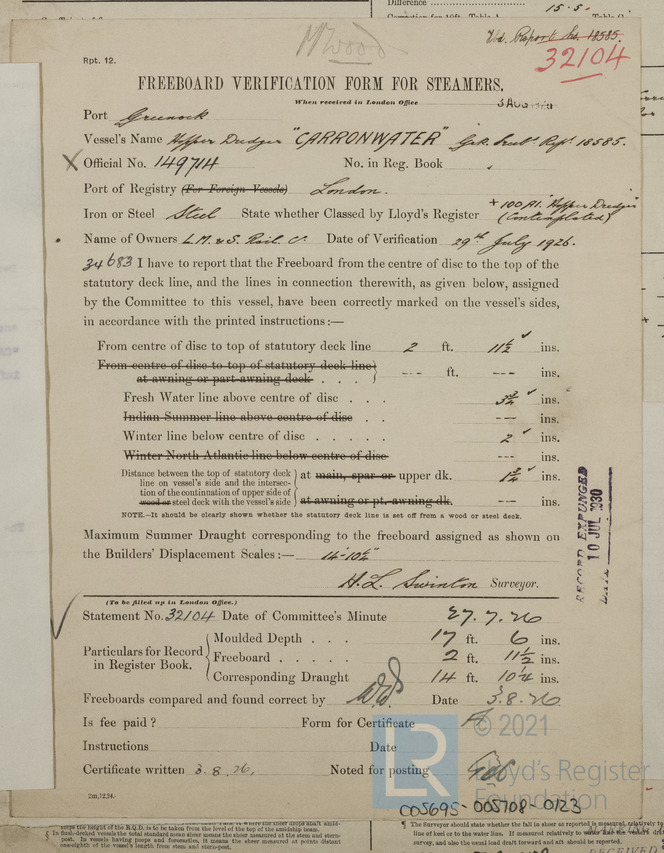 Difference
15·5·
Vd. Report No. 18585.
32104
Rpt. 12.
FREEBOARD VERIFICATION FORM FOR STEAMERS.
When received in London Office
3 AUG 1926
Port Greenock
Vessel's Name Hopper Dredger "CARRONWATER" Grk. Rept 18585.
Official No. 149714 No. in Reg. Book
Port of Registry (For Foreign Vessels) London.
Iron or Steel Steel State whether Classed by Lloyd's Register + 100 A1. Hopper Dredger (Contemplated)
Name of Owners L.M. & S. Rail. Co. Date of Verification 29th July 1926.
34683 I have to report that the Freeboard from the centre of disc to the top of the
statutory deck line, and the lines in connection therewith, as given below, assigned
by the Committee to this vessel, have been correctly marked on the vessel's sides,
in accordance with the printed instructions:—
From centre of disc to top of statutory deck line 2 ft. 11½ ins.
From centre of disc to top of statutory deck line
at awning or part awning deck . . . --- ft. --- ins.
Fresh Water line above centre of disc . . . 3¾ ins.
Indian Summer line above centre of disc . . --- ins.
Winter line below centre of disc . . . . . 2 ins.
Winter North Atlantic line below centre of disc --- ins.
Distance between the top of statutory deck
line on vessel's side and the intersec-
tion of the continuation of upper side of
wood or steel deck with the vessel's side
at main, spar or upper dk. 1¾ ins.
at awning or pt. awning dk. --- ins.
NOTE.—It should be clearly shown whether the statutory deck line is set off from a wood or steel deck.
Maximum Summer Draught corresponding to the freeboard assigned as shown on
the Builders' Displacement Scales:— 14'-10½"
H. L. Swinton Surveyor.
RECORD EXPUNGED
10 JUL 1930
(To be filled up in London Office.)
Statement No. 32104 Date of Committee's Minute 27.7.26
Particulars for Record
in Register Book.
Moulded Depth . . . 17 ft. 6 ins.
Freeboard . . . . . 2 ft. 11½ ins.
Corresponding Draught 14 ft. 10¼ ins.
Freeboards compared and found correct by Date 3.8.26
Is fee paid? Form for Certificate A
Instructions Date
Certificate written 3.8.26. Noted for posting
2m,12.24.
LR
© 2021
Lloyd's Register
Foundation
C05695-005708-0123
one-eighth of the vessel's length from stem and stern-post.
¶ The Surveyor should state whether the fall in sheer as reported is measured relatively to
line of keel or to the water line. If measured relatively to
survey, and also the semi load draught forward and aft should be reported.
RECEIVED